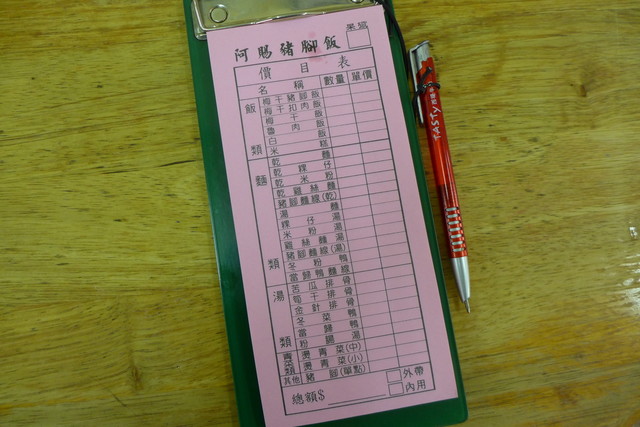 桌號
阿賜豬腳飯
價目表
名稱 數量 單價
飯類
梅干豬腳飯
梅干扣肉飯
梅干飯
魯肉飯
白飯
米糕
麵類
乾麵
乾粿仔
乾米粉
乾雞絲麵
豬腳麵線(乾)
湯麵
粿仔湯
米粉湯
雞絲麵湯
豬腳麵線(湯)
冬粉鴨
當歸鴨麵線
湯類
苦瓜排骨
筍干排骨
金針排骨
冬菜鴨
當歸鴨
粉腸湯
青菜類
燙青菜(中)
燙青菜(小)
其他 豬腳(單點)
總額$
外帶
內用
TASTY